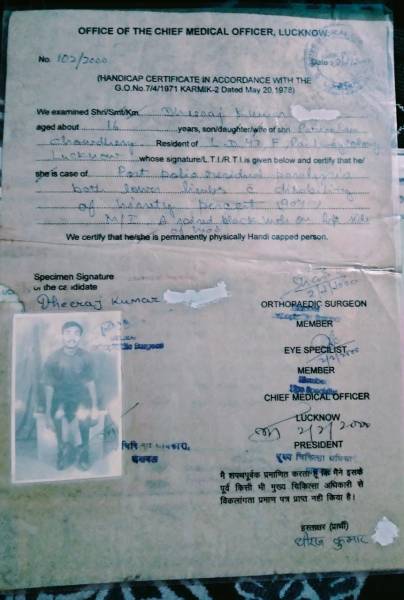 OFFICE OF THE CHIEF MEDICAL OFFICER, LUCKNOW
No. 102/2000
(HANDICAP CERTIFICATE IN ACCORDANCE WITH THE
G.O.No.7/4/1971 KARMIK-2 Dated May 20,1978)
We examined Shri/Smt/Km. Dheeraj Kumar
aged about 16 years, son/daughter/wife of shri
Choudhery Resident of L.D. 47 F
Lucknow whose signature/L.T.I./R.T.I is given below and certify that he/
she is case of Post polio residual paralysis
both lower limbs c disability
of ninety percent (90%)
M/I. A raised black mole on left side
of
We certify that he/she is permanently physically Handi capped person.
Specimen Signature
of the candidate
Dheeraj Kumar
2/2/2000
ORTHOPAEDIC SURGEON
MEMBER
EYE SPECILIST
2/2/2000
MEMBER
Member
CHIEF MEDICAL OFFICER
LUCKNOW
2/2/2000
PRESIDENT
मुख्य चिकित्सा अधिकारी
लखनऊ
मैं शपथपूर्वक प्रमाणित करता हूँ कि मैंने इसके
पूर्व किसी भी मुख्य चिकित्सा अधिकारी से
विकलांगता प्रमाण पत्र प्राप्त नहीं किया है।
हस्ताक्षर (प्रार्थी)
धीरज कुमार